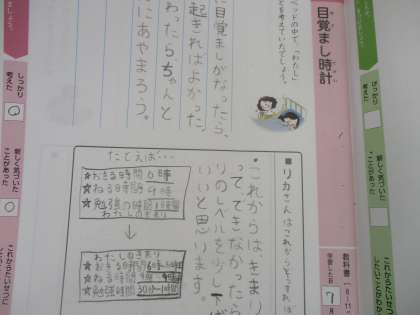 目覚まし時計
ベッドの中で、「わたし」
とを考えていたでしょう。
に目覚ましがなったら、
起きればよかった。
わったら、ちゃんと
にあやまろう。
教科書
学習した日
7
■リカさんはこれからどうすれば
・これからはきまり
って、できなかったら
りのレベルを少し下げ
いいと思います。
たとえば…
★おきる時間 6時
★ねる時間 9時
わたしのきまり
↓
わたしのきまり
★おきる時間
★ねる時間
★勉強時間
しっかり
考えた
新しく気づいた
ことがあった
これからたいせつに
しっかり
考えた
新しく気づいた
ことがあった
これからたいせつに
したいことがわかっ